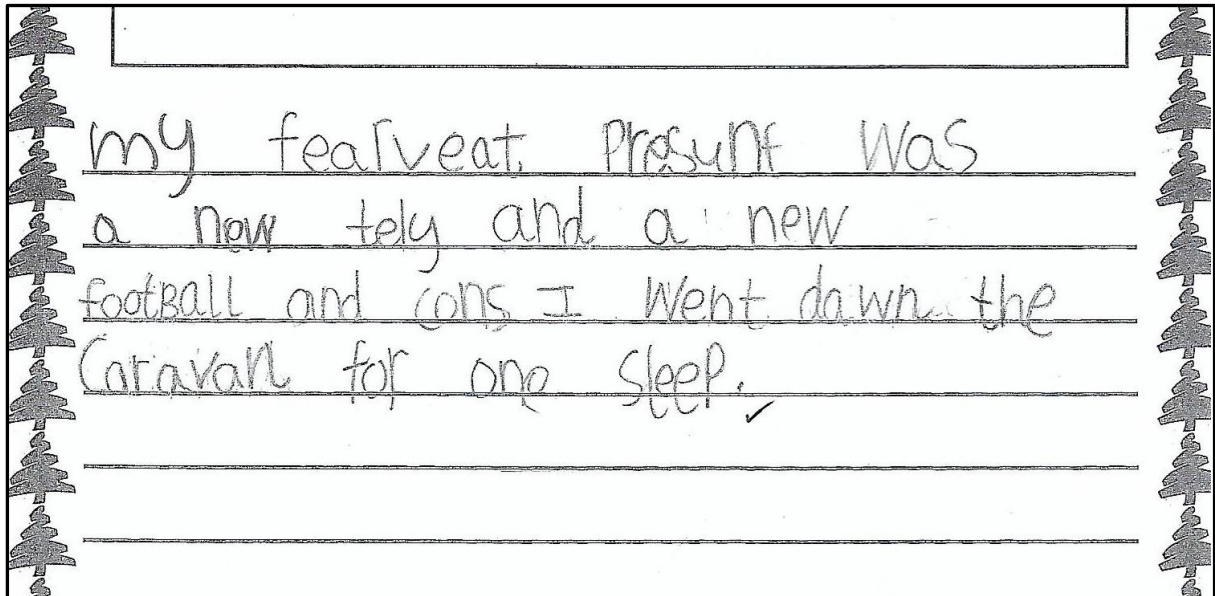 my fearveat Presunt was
a new tely and a new
footBall and cons I went dawn the
Caravan for one sleep.